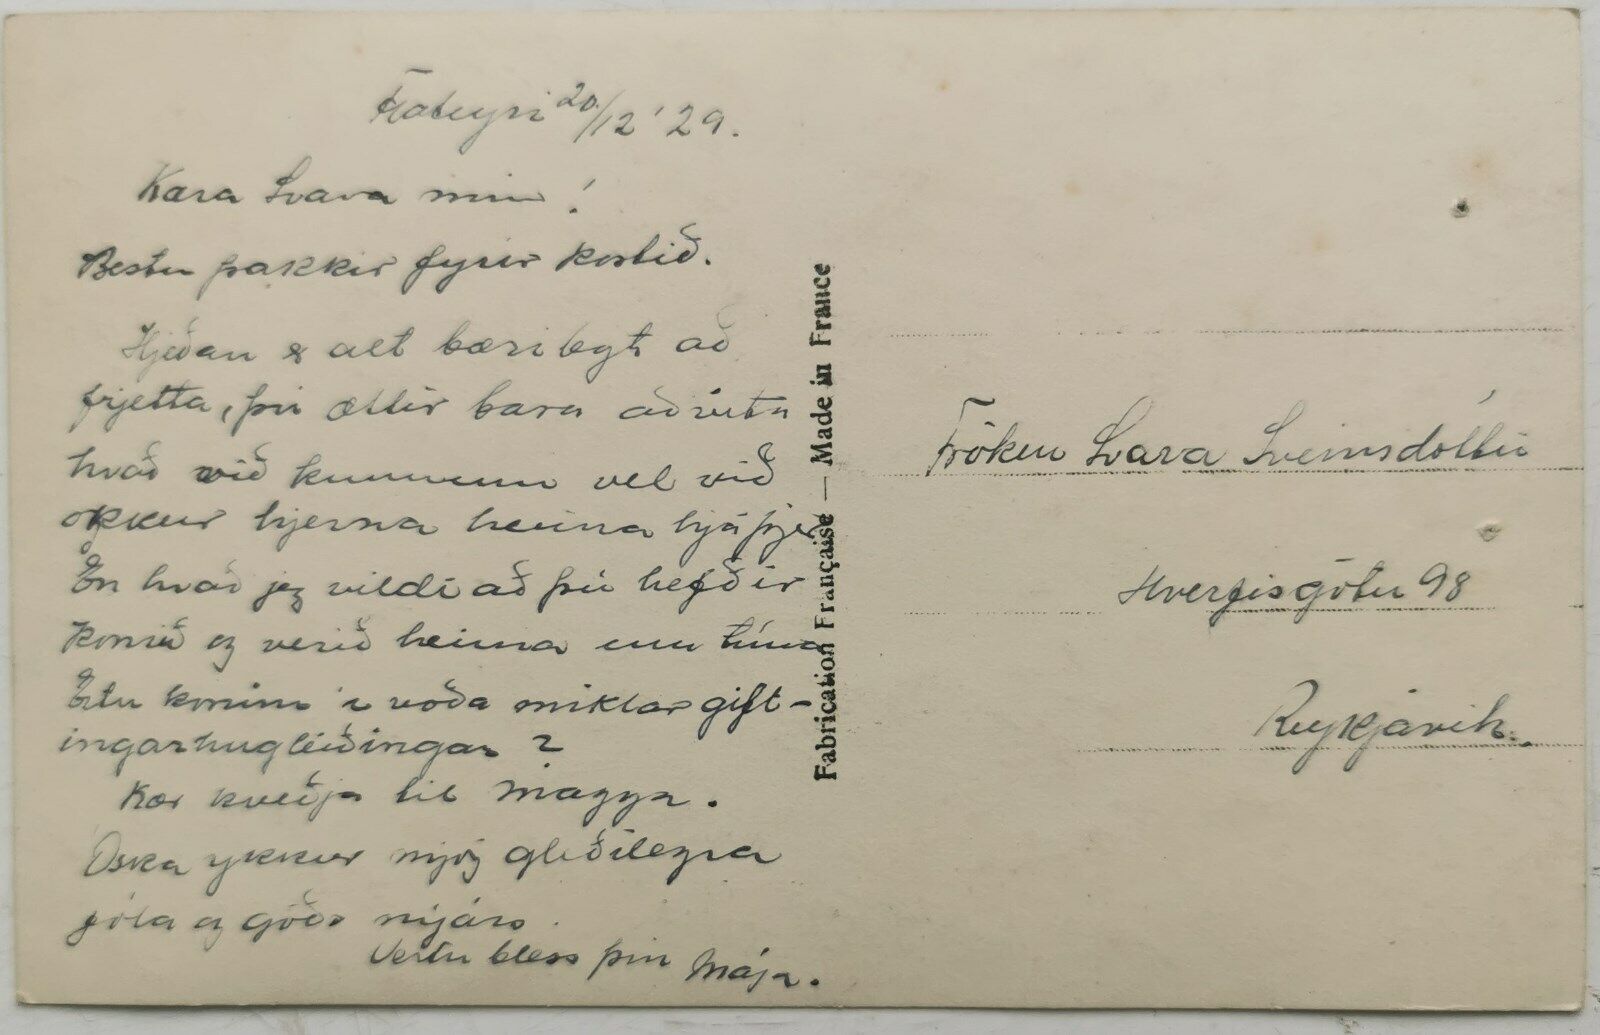 Flateyri 20/12 '29.
Kæra Svava mín!
Bestu þakkir fyrir kortið.
Hjeðan er alt bærilegt að
frjetta, þú ættir bara að vita
hvað við kunnum vel við
okkur hjerna heima hjá þjer
En hvað jeg vildi að þú hefðir
komið og verið heima um tíma
Ertu komin í voða miklar gift-
ingarhugleiðingar?
Kær kveðja til Magga.
Óska ykkur mjög gleðilegra
jóla og góðs nýárs.
Vertu bless þín Mája.
Fabrication Française — Made in France
Fröken Svava Sveinsdóttir
Hverfisgötu 98
Reykjavík.